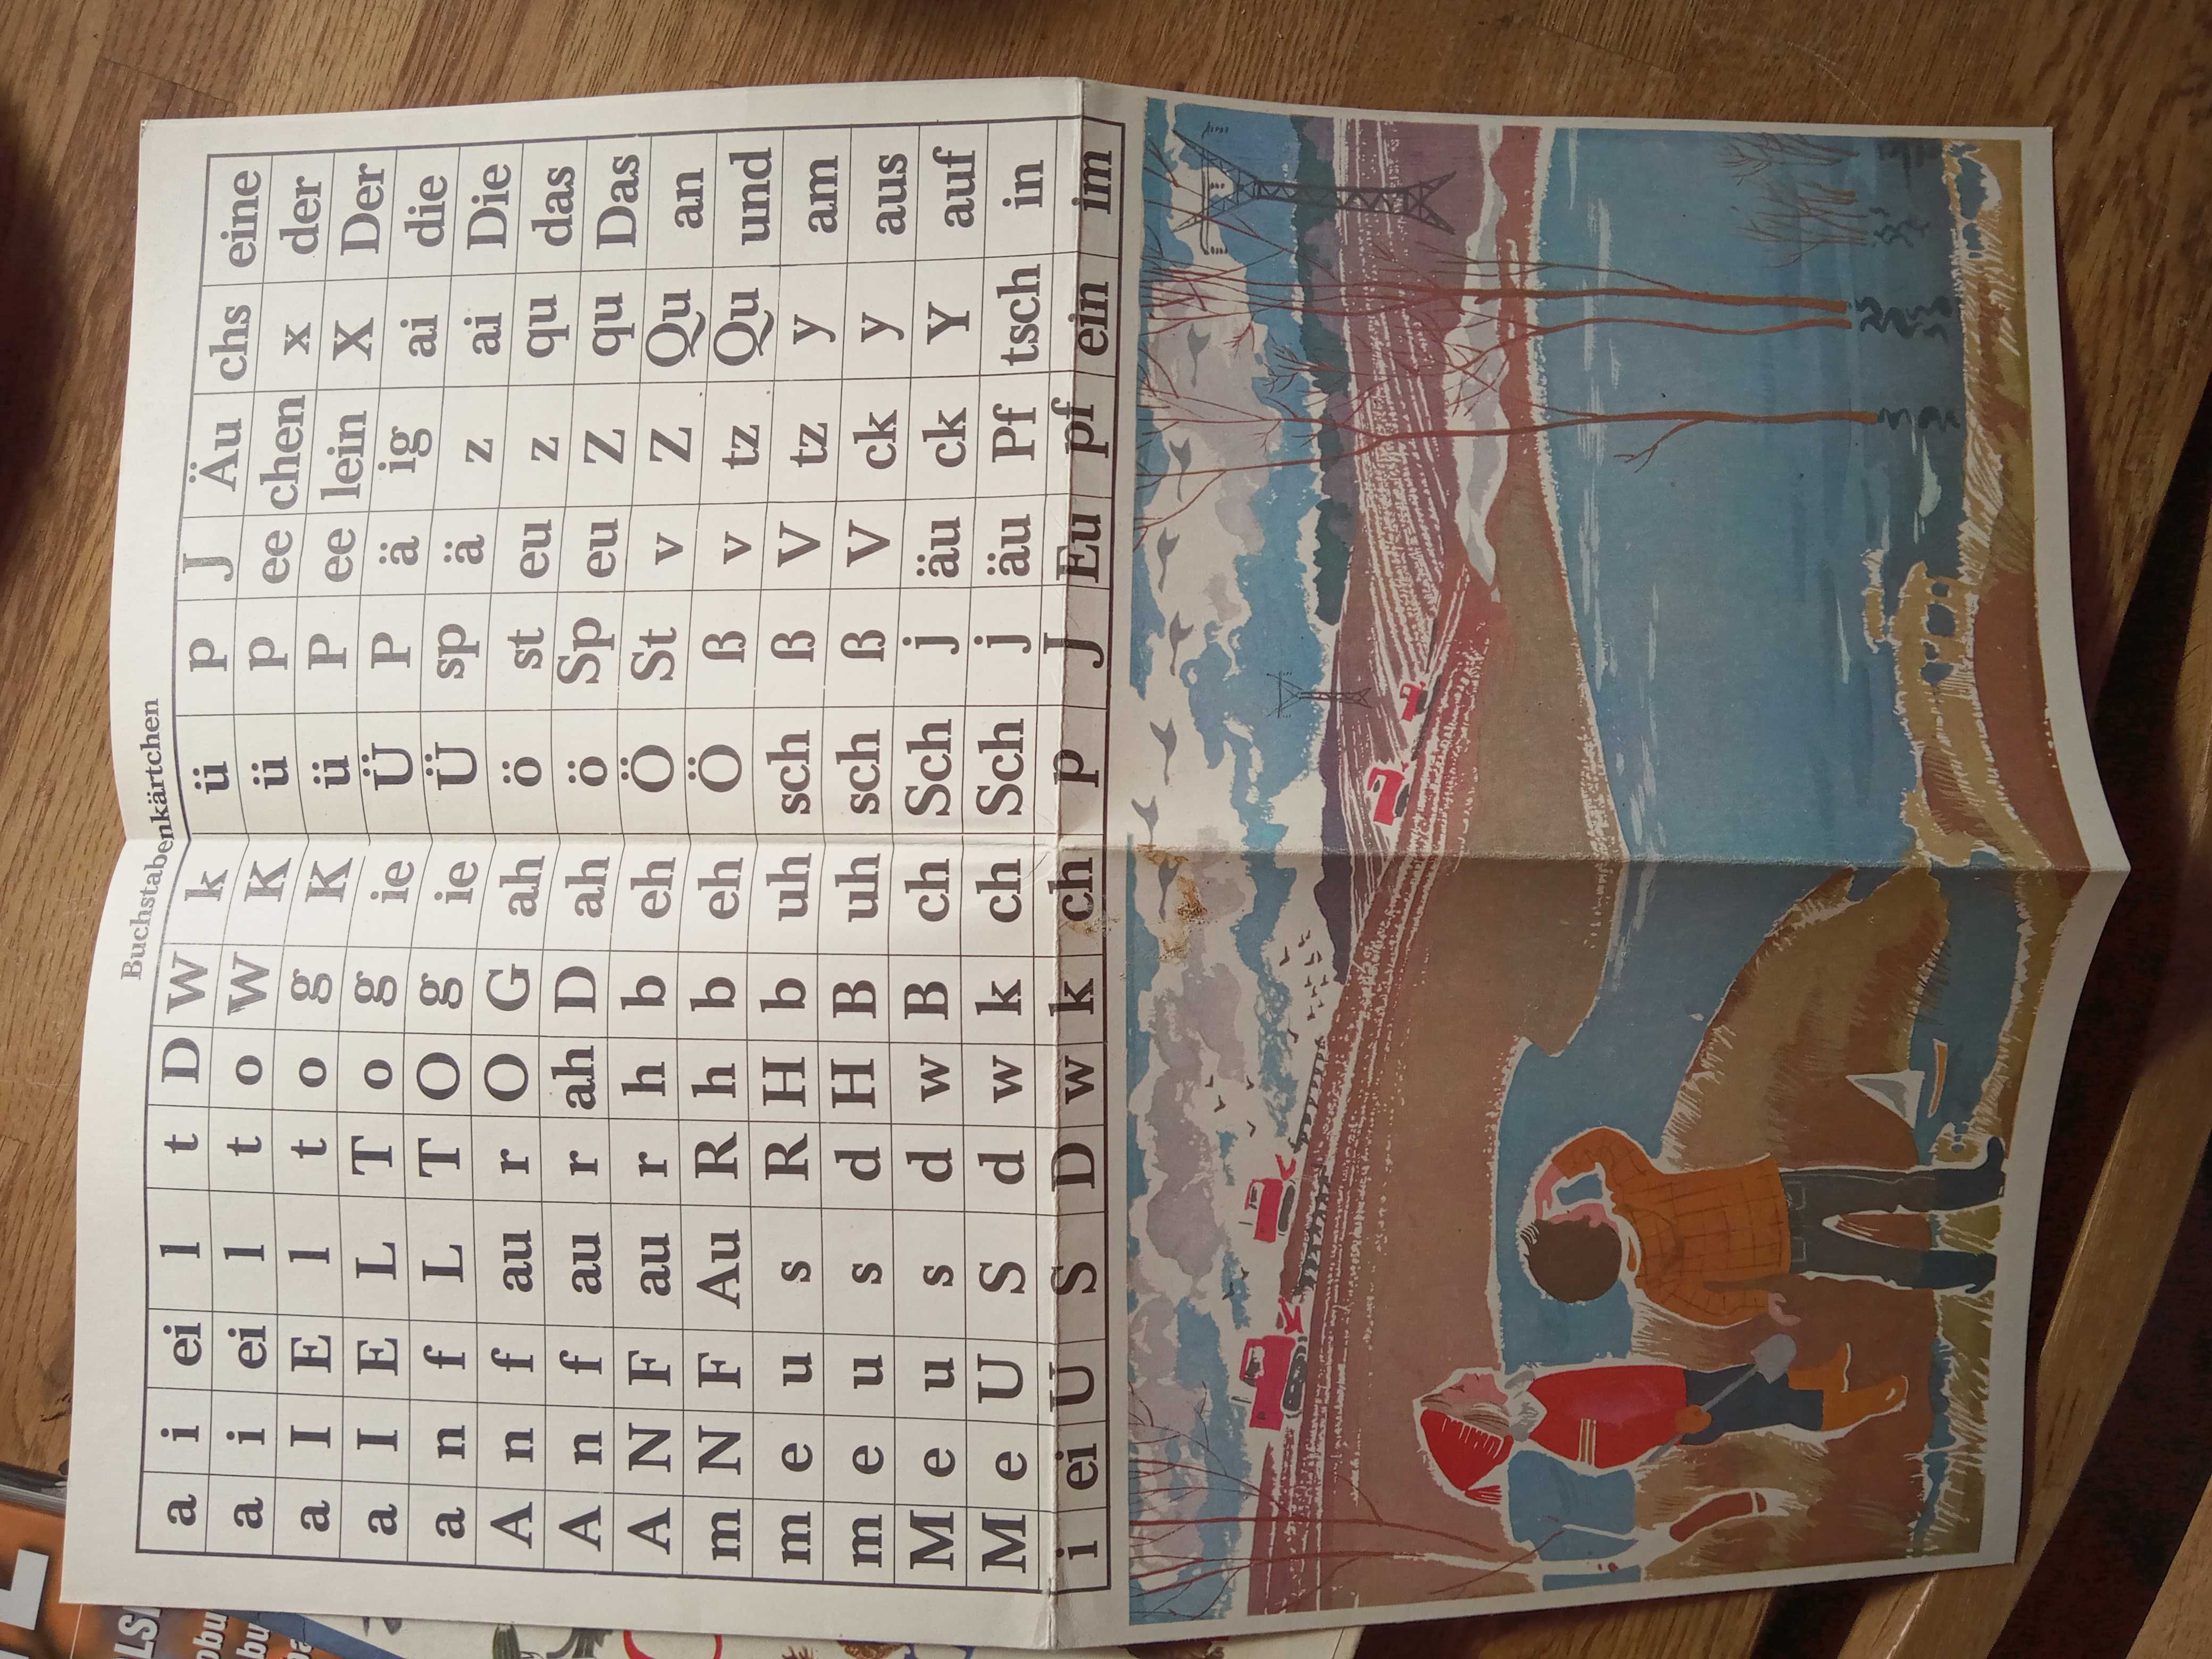 Buchstabenkärtchen
a i ei l t D W k ü p J Äu chs eine
a i ei l t o W K ü p ee chen x der
a I E l t o g K ü P ee lein X Der
a I E L T o g ie Ü P ä ig ai die
a n f L T O g ie Ü sp ä z ai Die
A n f au r O G ah ö st eu z qu das
A n f au r ah D ah ö Sp eu Z qu Das
A N F au r h b eh Ö St v Z Qu an
m N F Au R h b eh Ö ß v tz Qu und
m e u s R H b uh sch ß V tz y am
m e u s d H B uh sch ß V ck y aus
M e u s d w B ch Sch j äu ck Y auf
M e U S d w k ch Sch j äu Pf tsch in
i ei U S D w k ch p J Eu pf ein im